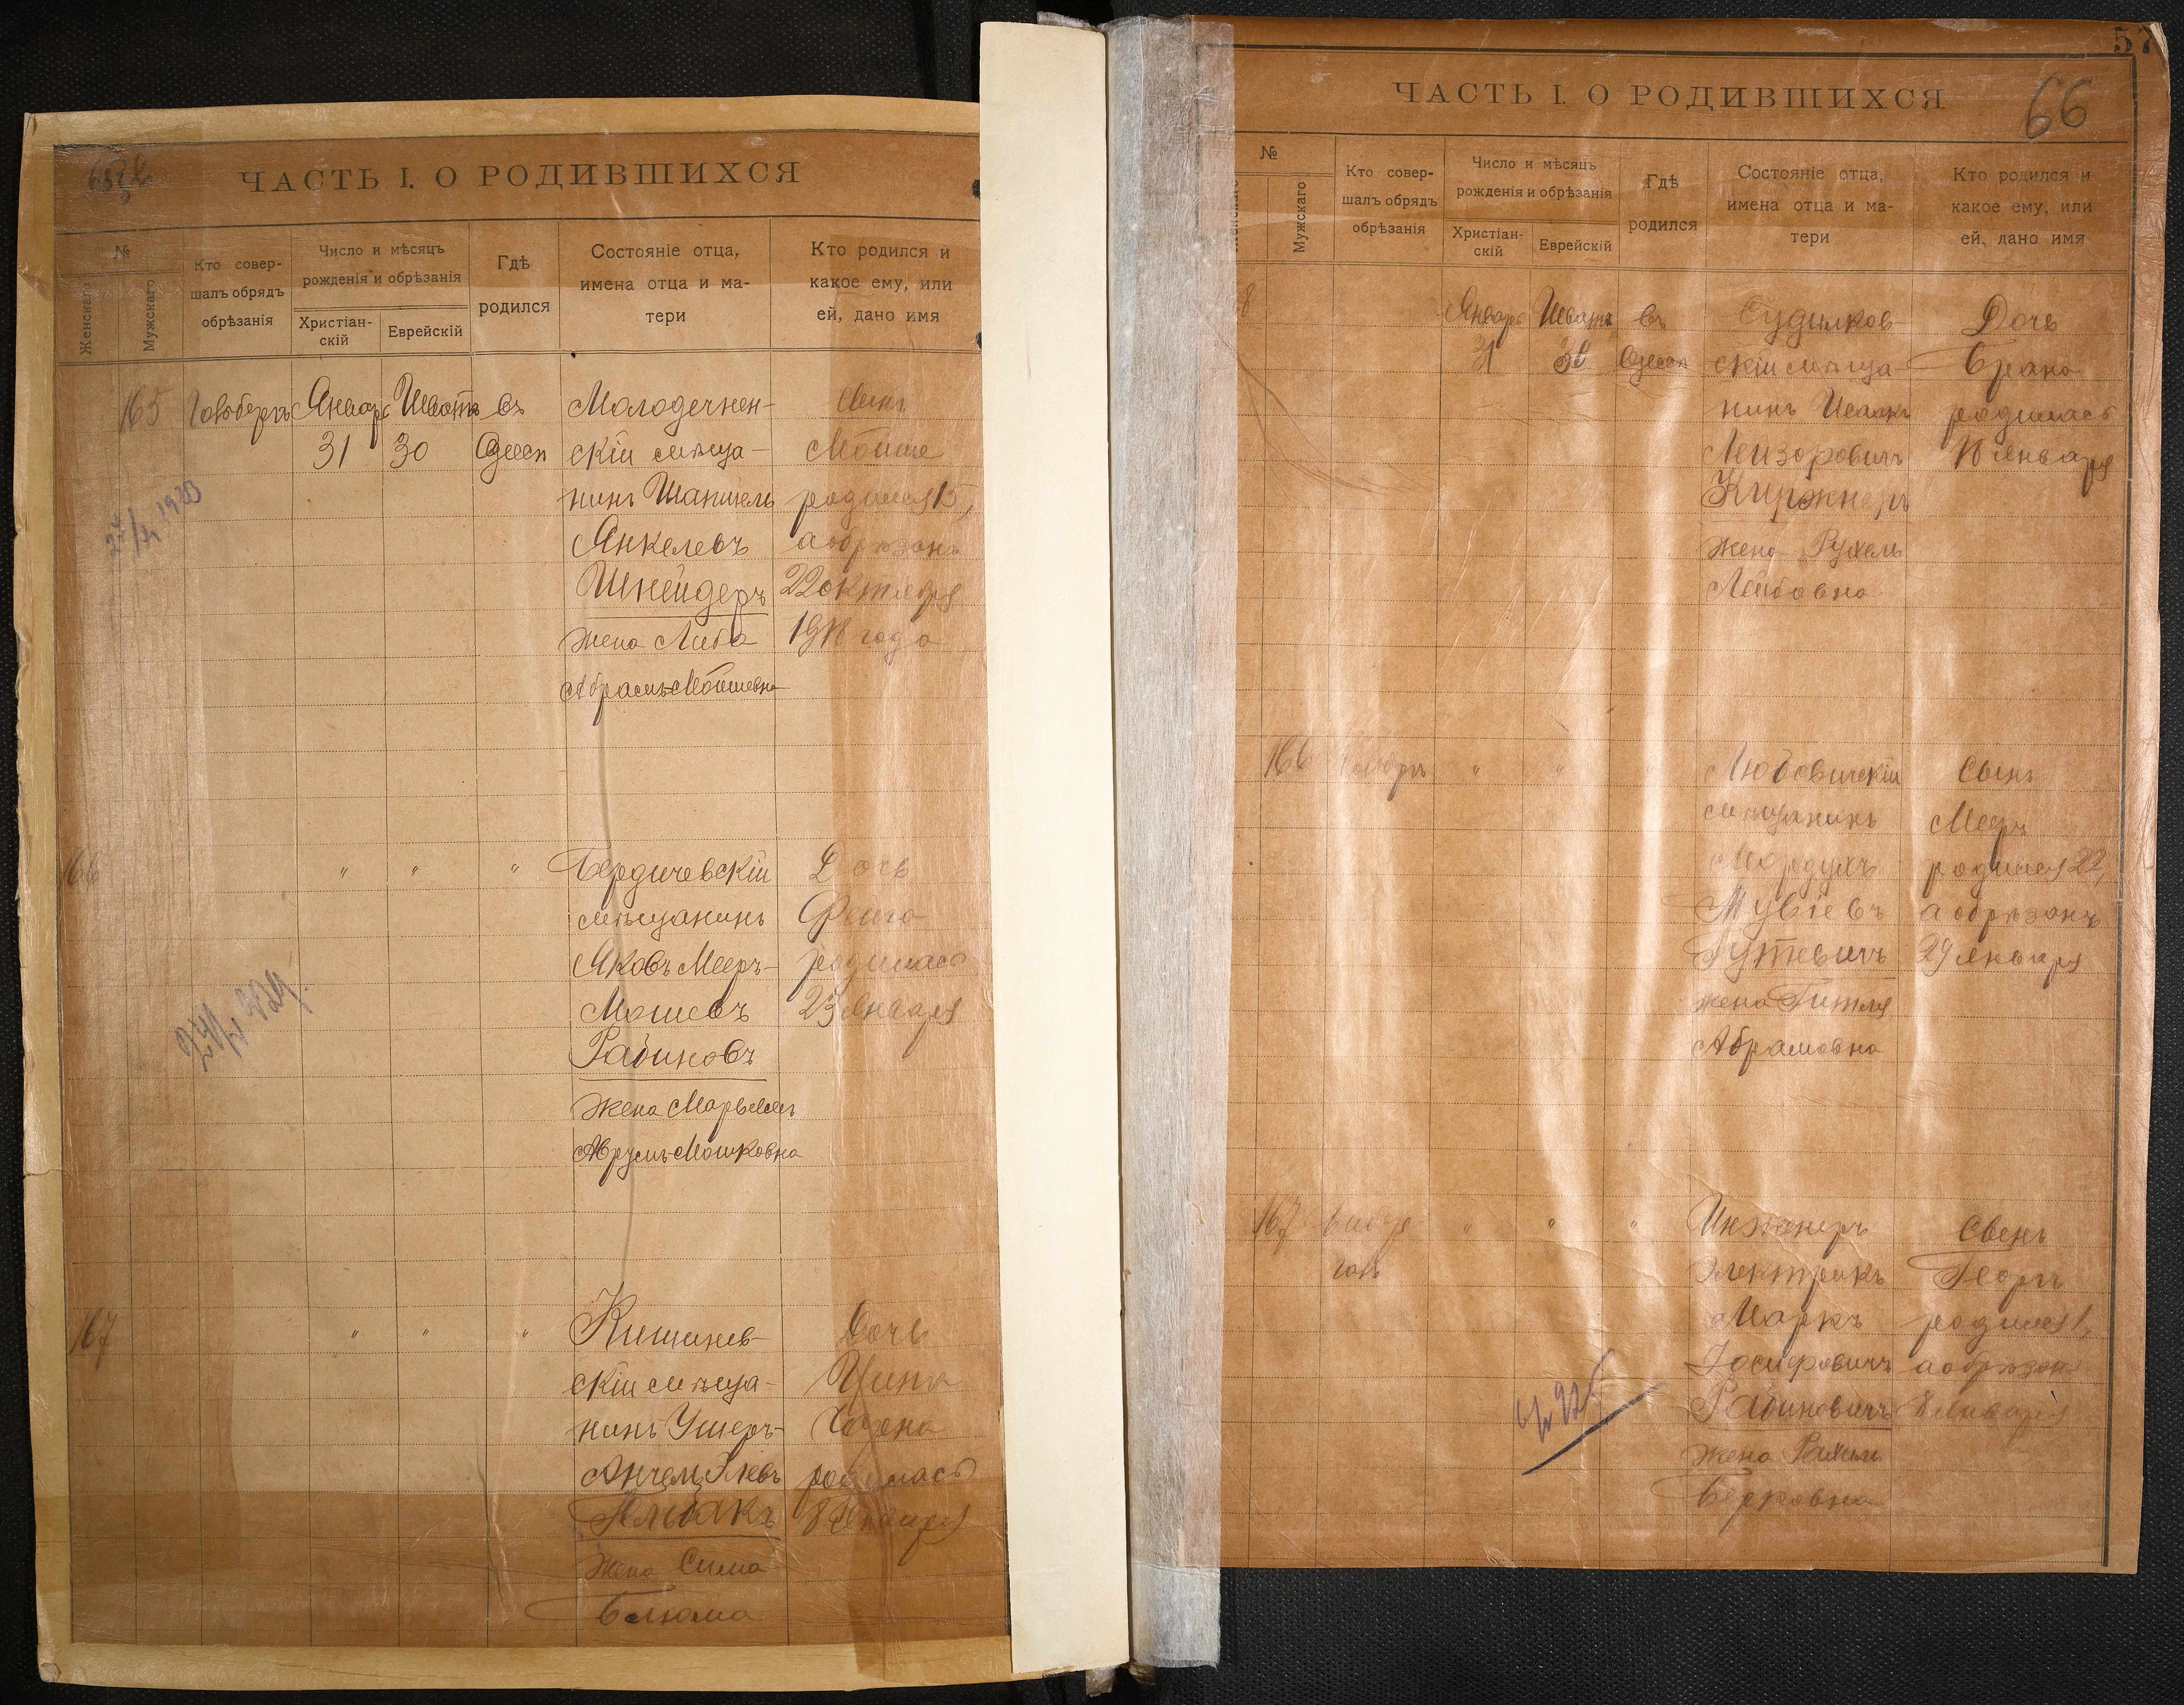 ЧАСТЬ I. О РОДИВШИХСЯ
№
Женскаго
Мужскаго
Кто совер-
шалъ обрядъ
обрѣзанія
Число и мѣсяцъ
рожденія и обрѣзанія
Христіан-
скій
Еврейскій
Гдѣ
родился
Состояніе отца,
имена отца и ма-
тери
Кто родился и
какое ему, или
ей, дано имя
165
Январь
31
Шватъ
30
въ
Одессѣ
Молодечнен-
скій мѣща-
нинъ
Янкелевъ
Шнейдеръ
жена Либа
Абрамъ-Мойшевна
Сынъ
Мойше
родился 15,
а обрѣзанъ
22 октября
1918 года
166
"
"
"
Бердичевскій
мѣщанинъ
Яковъ Мееръ-
Мошевъ
Рабиновъ
жена
Аврумъ-Мошковна
Дочь
Фейга
родилась
23 января
167
"
"
"
Кишинев-
скій мѣща-
нинъ Ушеръ-
жена Сима
Блюма
Дочь
родилась
8 января
57
66
ЧАСТЬ I. О РОДИВШИХСЯ
№
Женскаго
Мужскаго
Кто совер-
шалъ обрядъ
обрѣзанія
Число и мѣсяцъ
рожденія и обрѣзанія
Христіан-
скій
Еврейскій
Гдѣ
родился
Состояніе отца,
имена отца и ма-
тери
Кто родился и
какое ему, или
ей, дано имя
Январь
31
Шватъ
30
въ
Одессѣ
Судилков-
скій мѣща-
нинъ Исаакъ
Лейзоровичъ
Киржнеръ
жена Рухель
Лейбовна
Дочь
Брана
родилась
января
166
"
"
"
Любовичскій
мѣщанинъ
Мордухъ
Гуткевичъ
жена Гитля
Абрамовна
Сынъ
Мееръ
родился 22,
а обрѣзанъ
29 января
167
"
"
"
Инженеръ
Электрикъ
Маркъ
Іосифовичъ
Рабиновичъ
жена Рахиль
Берковна
Сынъ
Георгъ
родился 1,
а обрѣзанъ
8 января